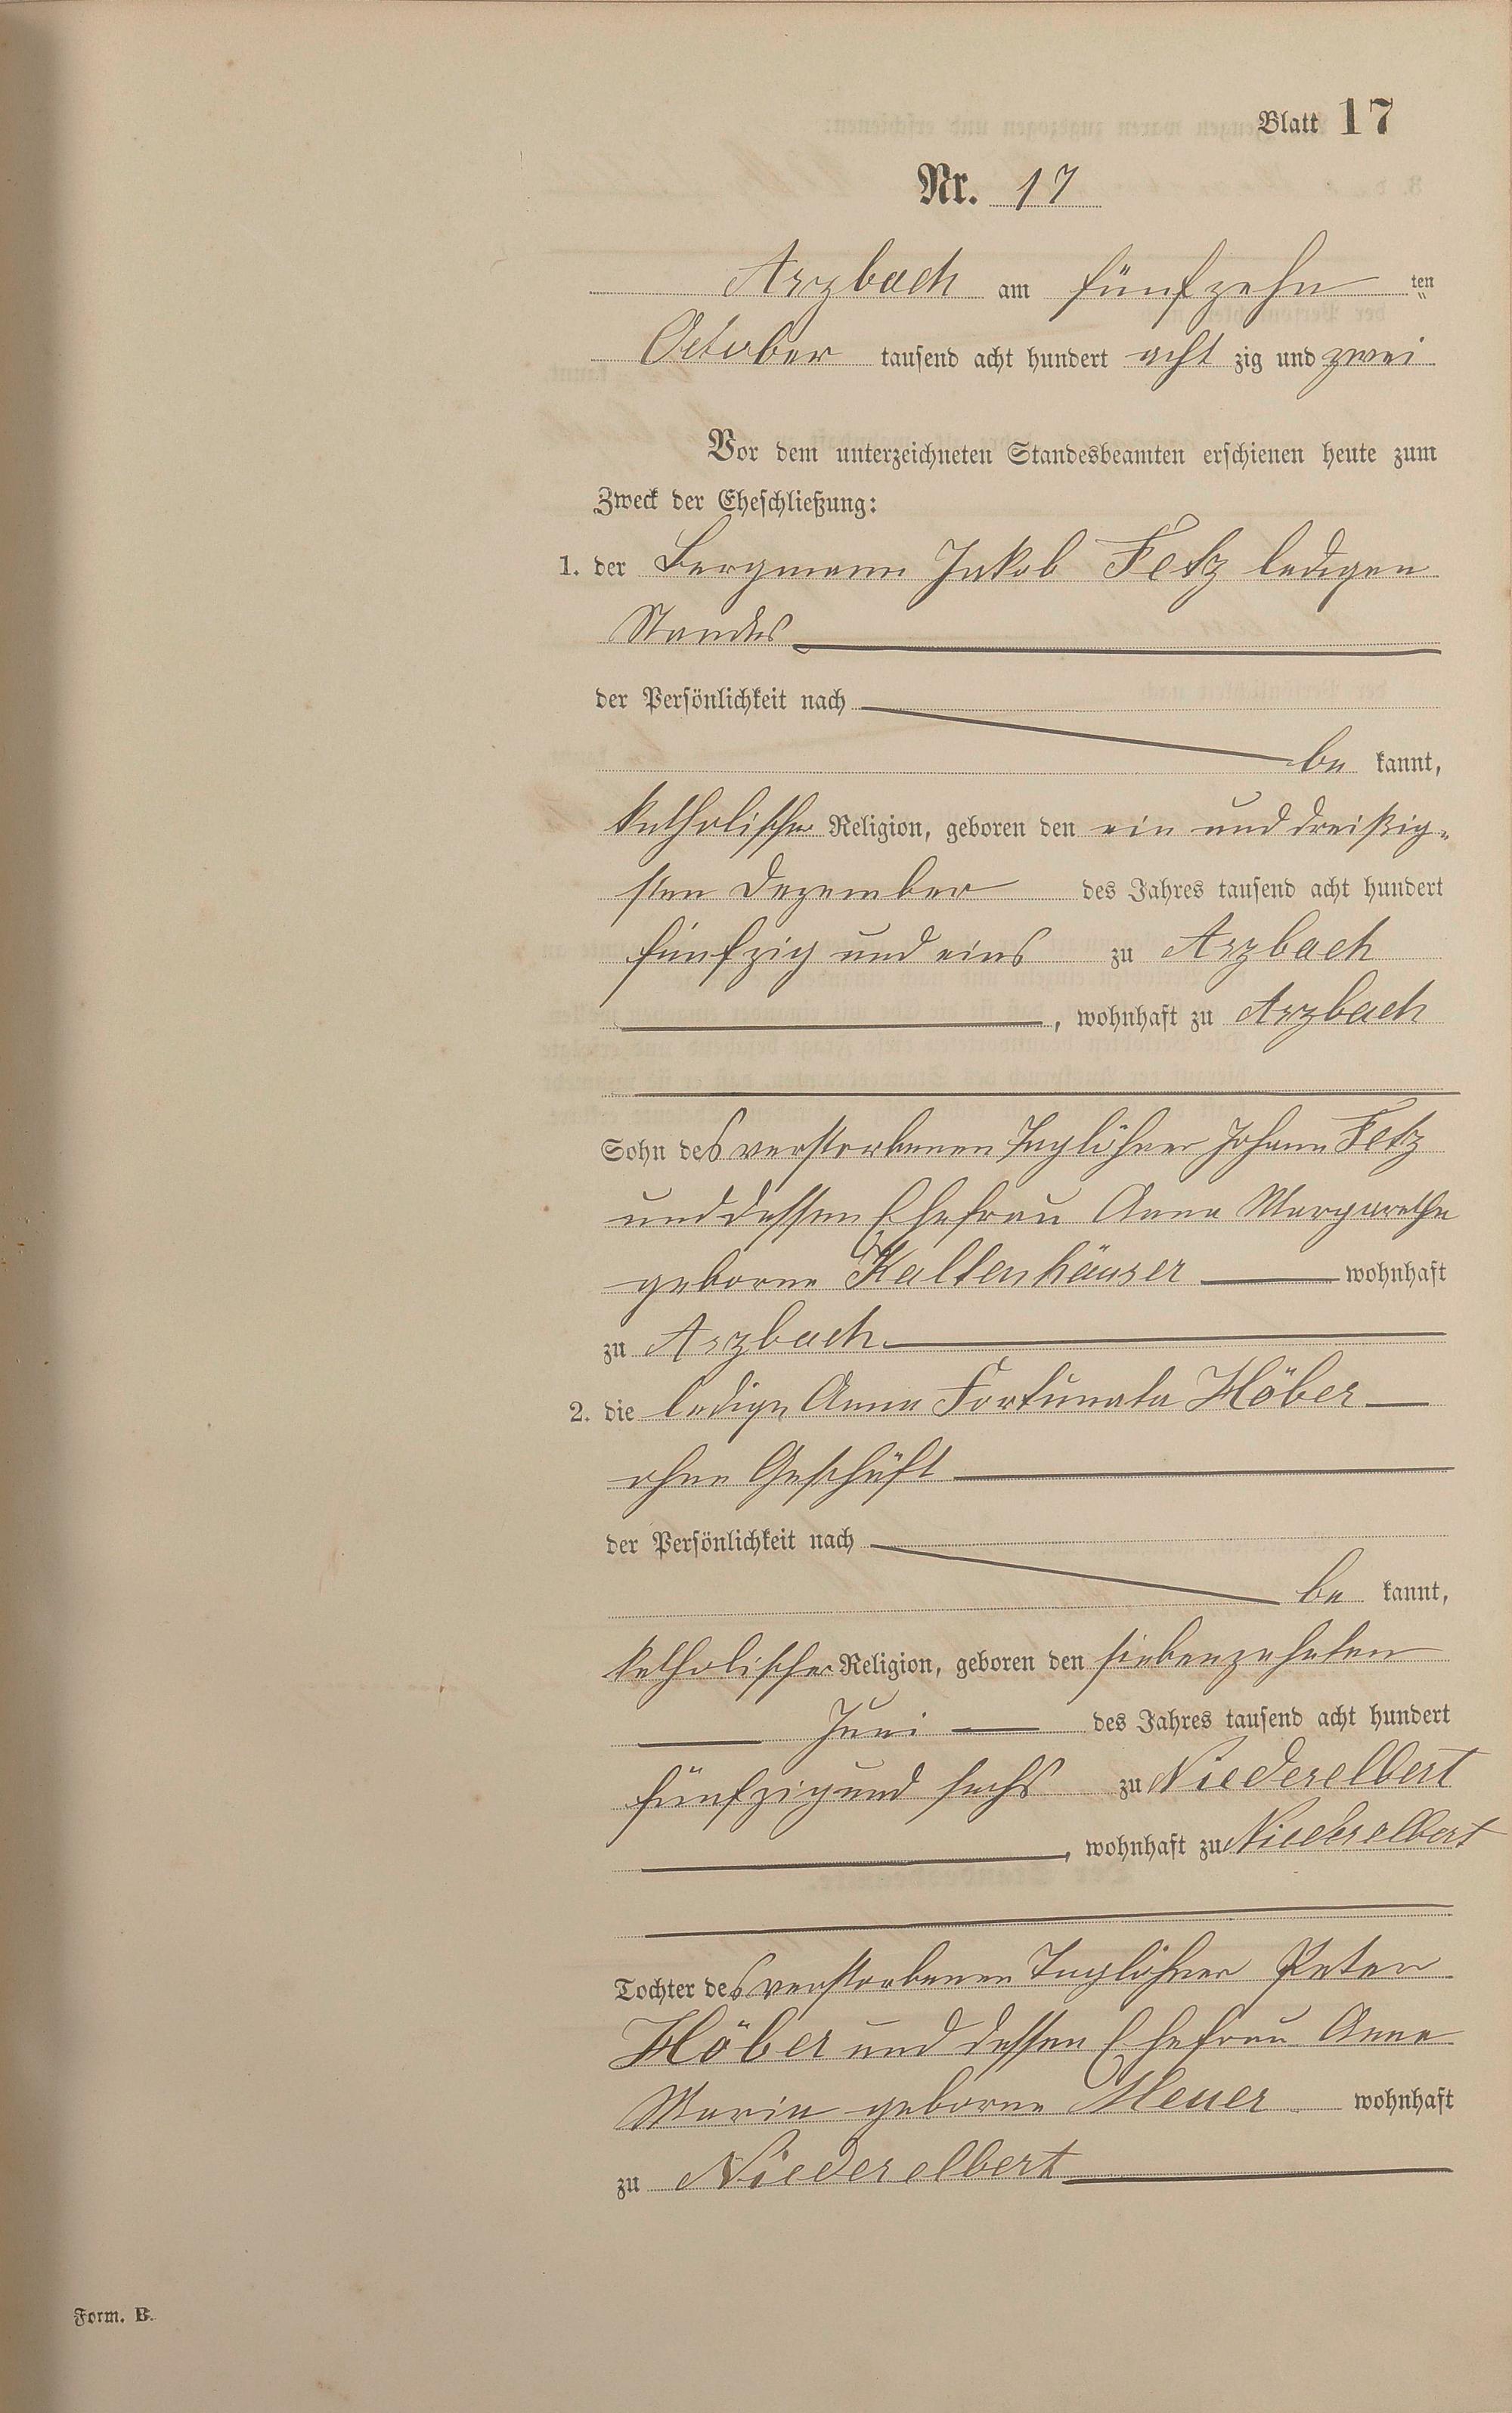 Blatt 17
Nr. 17
Arzbach am fünfzehn ten
October tausend acht hundert acht zig und zwei
Vor dem unterzeichneten Standesbeamten erschienen heute zum
Zweck der Eheschließung:
1. der Bergmann Jakob Fetz ledigen
Standes
der Persönlichkeit nach
be kannt,
katholischer Religion, geboren den ein und dreißig-
sten Dezember des Jahres tausend acht hundert
fünfzig und eins zu Arzbach
, wohnhaft zu Arzbach
Sohn des verstorbenen Taglöhner Johann Fetz
und dessen Ehefrau Anna Margarethe
geborne Kaltenhäuser wohnhaft
zu Arzbach
2. die ledige Anna Fortunata Höber
ohne Geschäft
der Persönlichkeit nach
be kannt,
katholischer Religion, geboren den siebenzehnten
Juni des Jahres tausend acht hundert
fünfzig und sechs zu Niederelbert
, wohnhaft zu Niederelbert
Tochter des verstorbenen Taglöhner Peter
Höber und dessen Ehefrau Anna
Maria geborne Meuer wohnhaft
zu Niederelbert
Form. B.